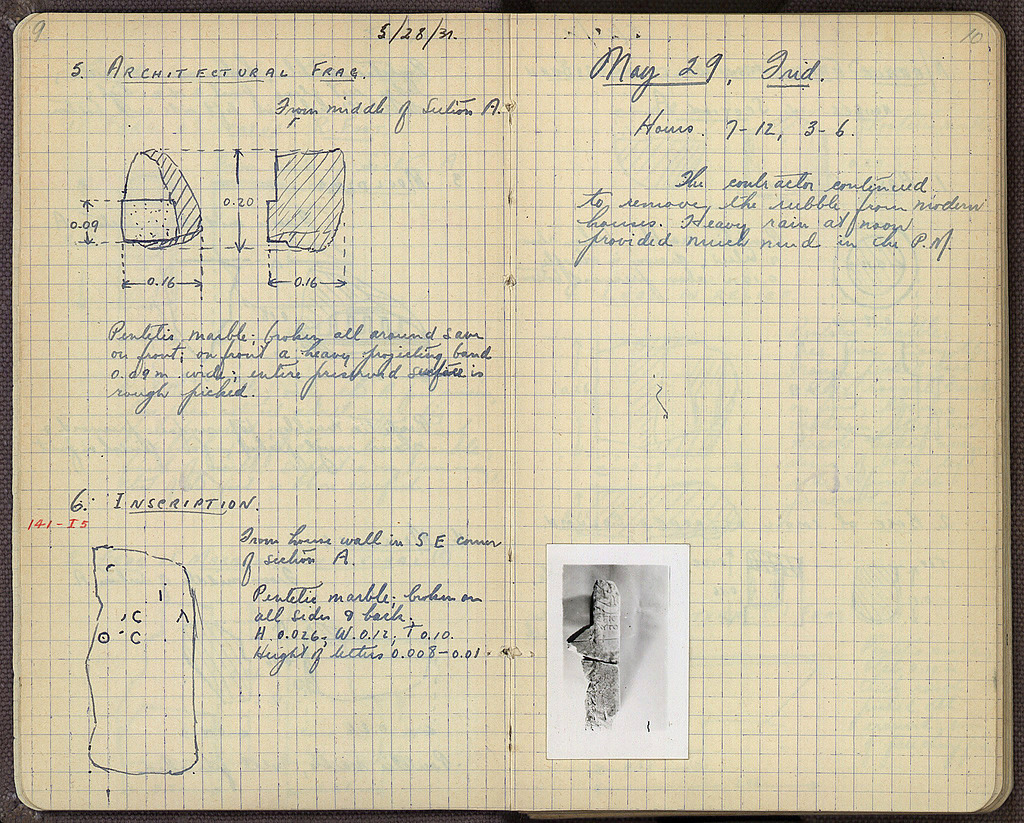 9
5/28/31.
5. ARCHITECTURAL FRAG.
From middle of Section A.
0.09
0.20
0.16
0.16
Pentelic marble; broken all around save
on front; on front a heavy projecting band
0.09 m. wide; entire preserved surface is
rough picked.
6. INSCRIPTION.
141-I5
From house wall in S E corner
of section A.
Pentelic marble; broken on
all sides & back.
H. 0.026; W. 0.12; T 0.10.
Height of letters 0.008-0.01.
10
May 29, Frid.
Hours. 7-12, 3-6.
The contractor continued
to remove the rubble from modern
houses. Heavy rain at noon
provided much mud in the P.M.